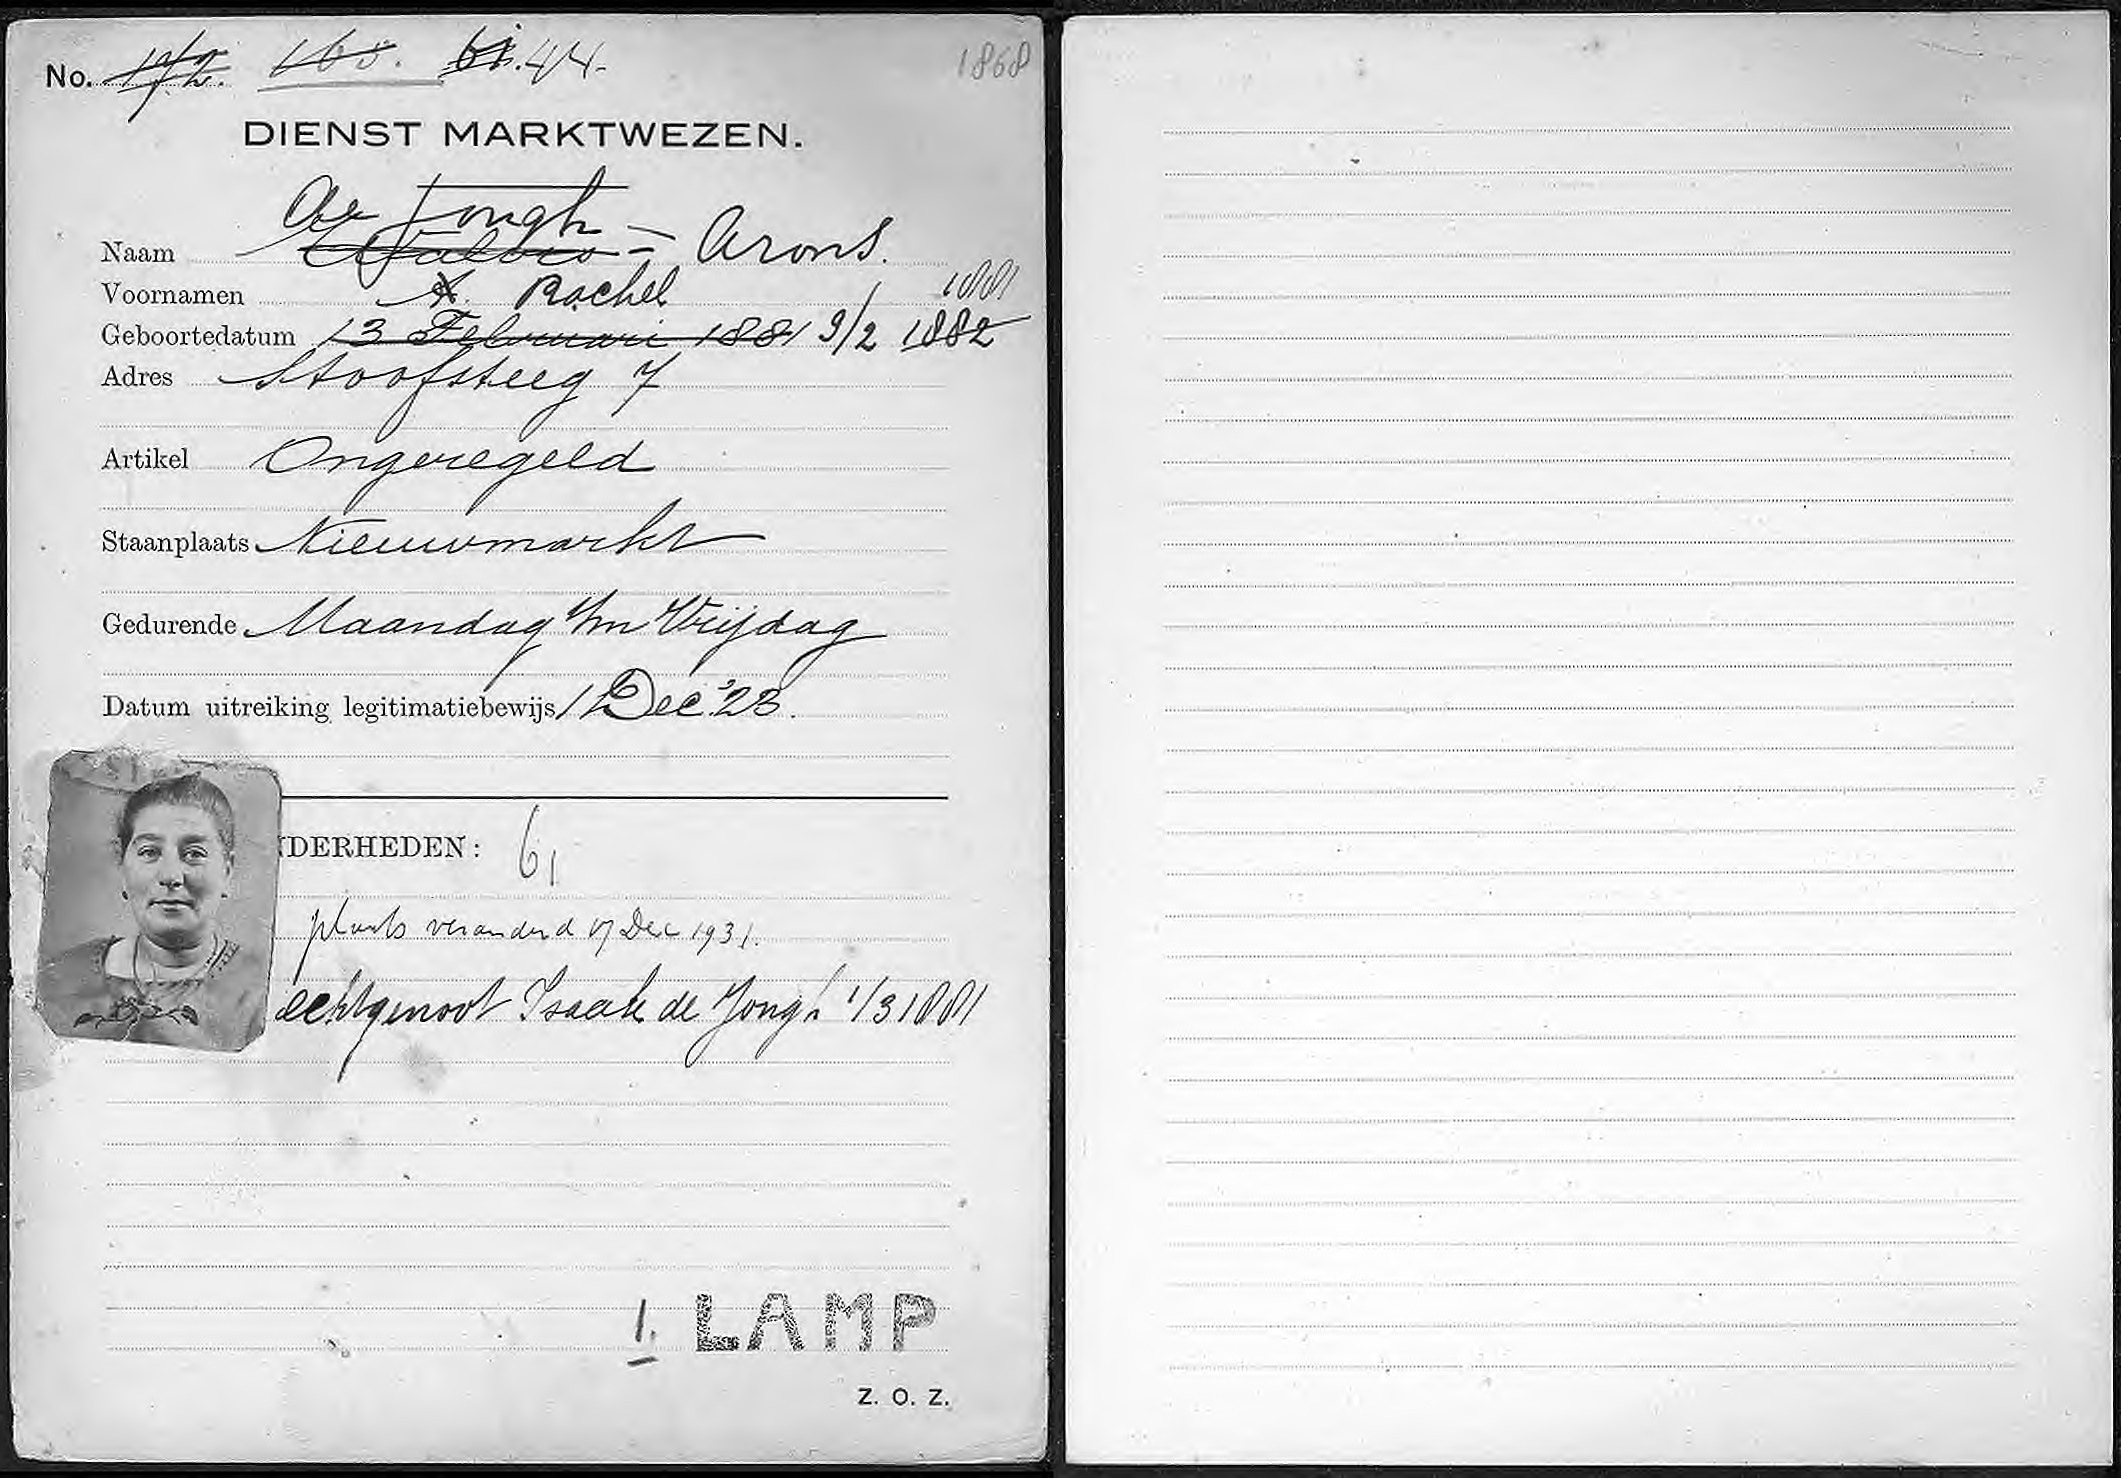 No. 172. 168. 61. 44. 1868
DIENST MARKTWEZEN.
de Jongh
Naam Walvis = Arons.
Voornamen A. Rachel 1881
Geboortedatum 13 Februari 1881 9/2 1882
Adres Stoofsteeg 7
Artikel Ongeregeld
Staanplaats Nieuwmarkt
Gedurende Maandag t/m Vrijdag
Datum uitreiking legitimatiebewijs 1 Dec '23.
NDERHEDEN: 61
plaats veranderd 17 Dec 1931.
echtgenoot Isaak de Jongh 1/3 1881
1. LAMP
Z. O. Z.